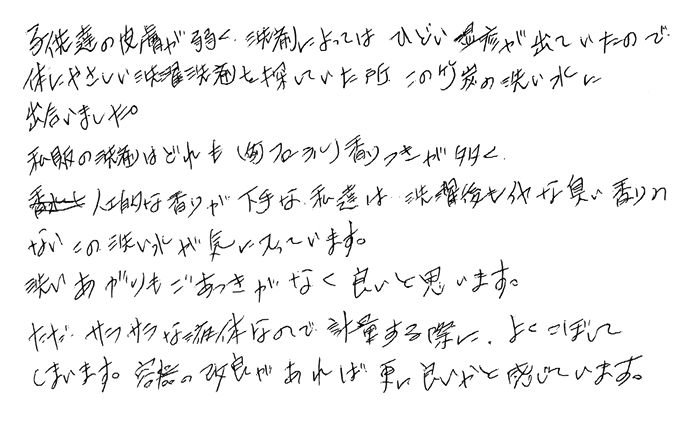 子供達の皮膚が弱く、洗剤によっては ひどい湿疹が出ていたので
体にやさしい洗濯洗剤を探していた所 この竹炭の洗い水に
出合いました。
私販の洗剤はどれも(毎フローラル)香りつきが多く、
人工的な香りが 下手な 私達は 洗濯後も 余分な臭い 香りの
ない この 洗い水が 気に入っています。
洗いあがりもごわつきがなく良いと思います。
ただ サラサラな液体なので 計量する際に、よくこぼして
しまいます。容器の改良があれば 更に良いかと感じています。